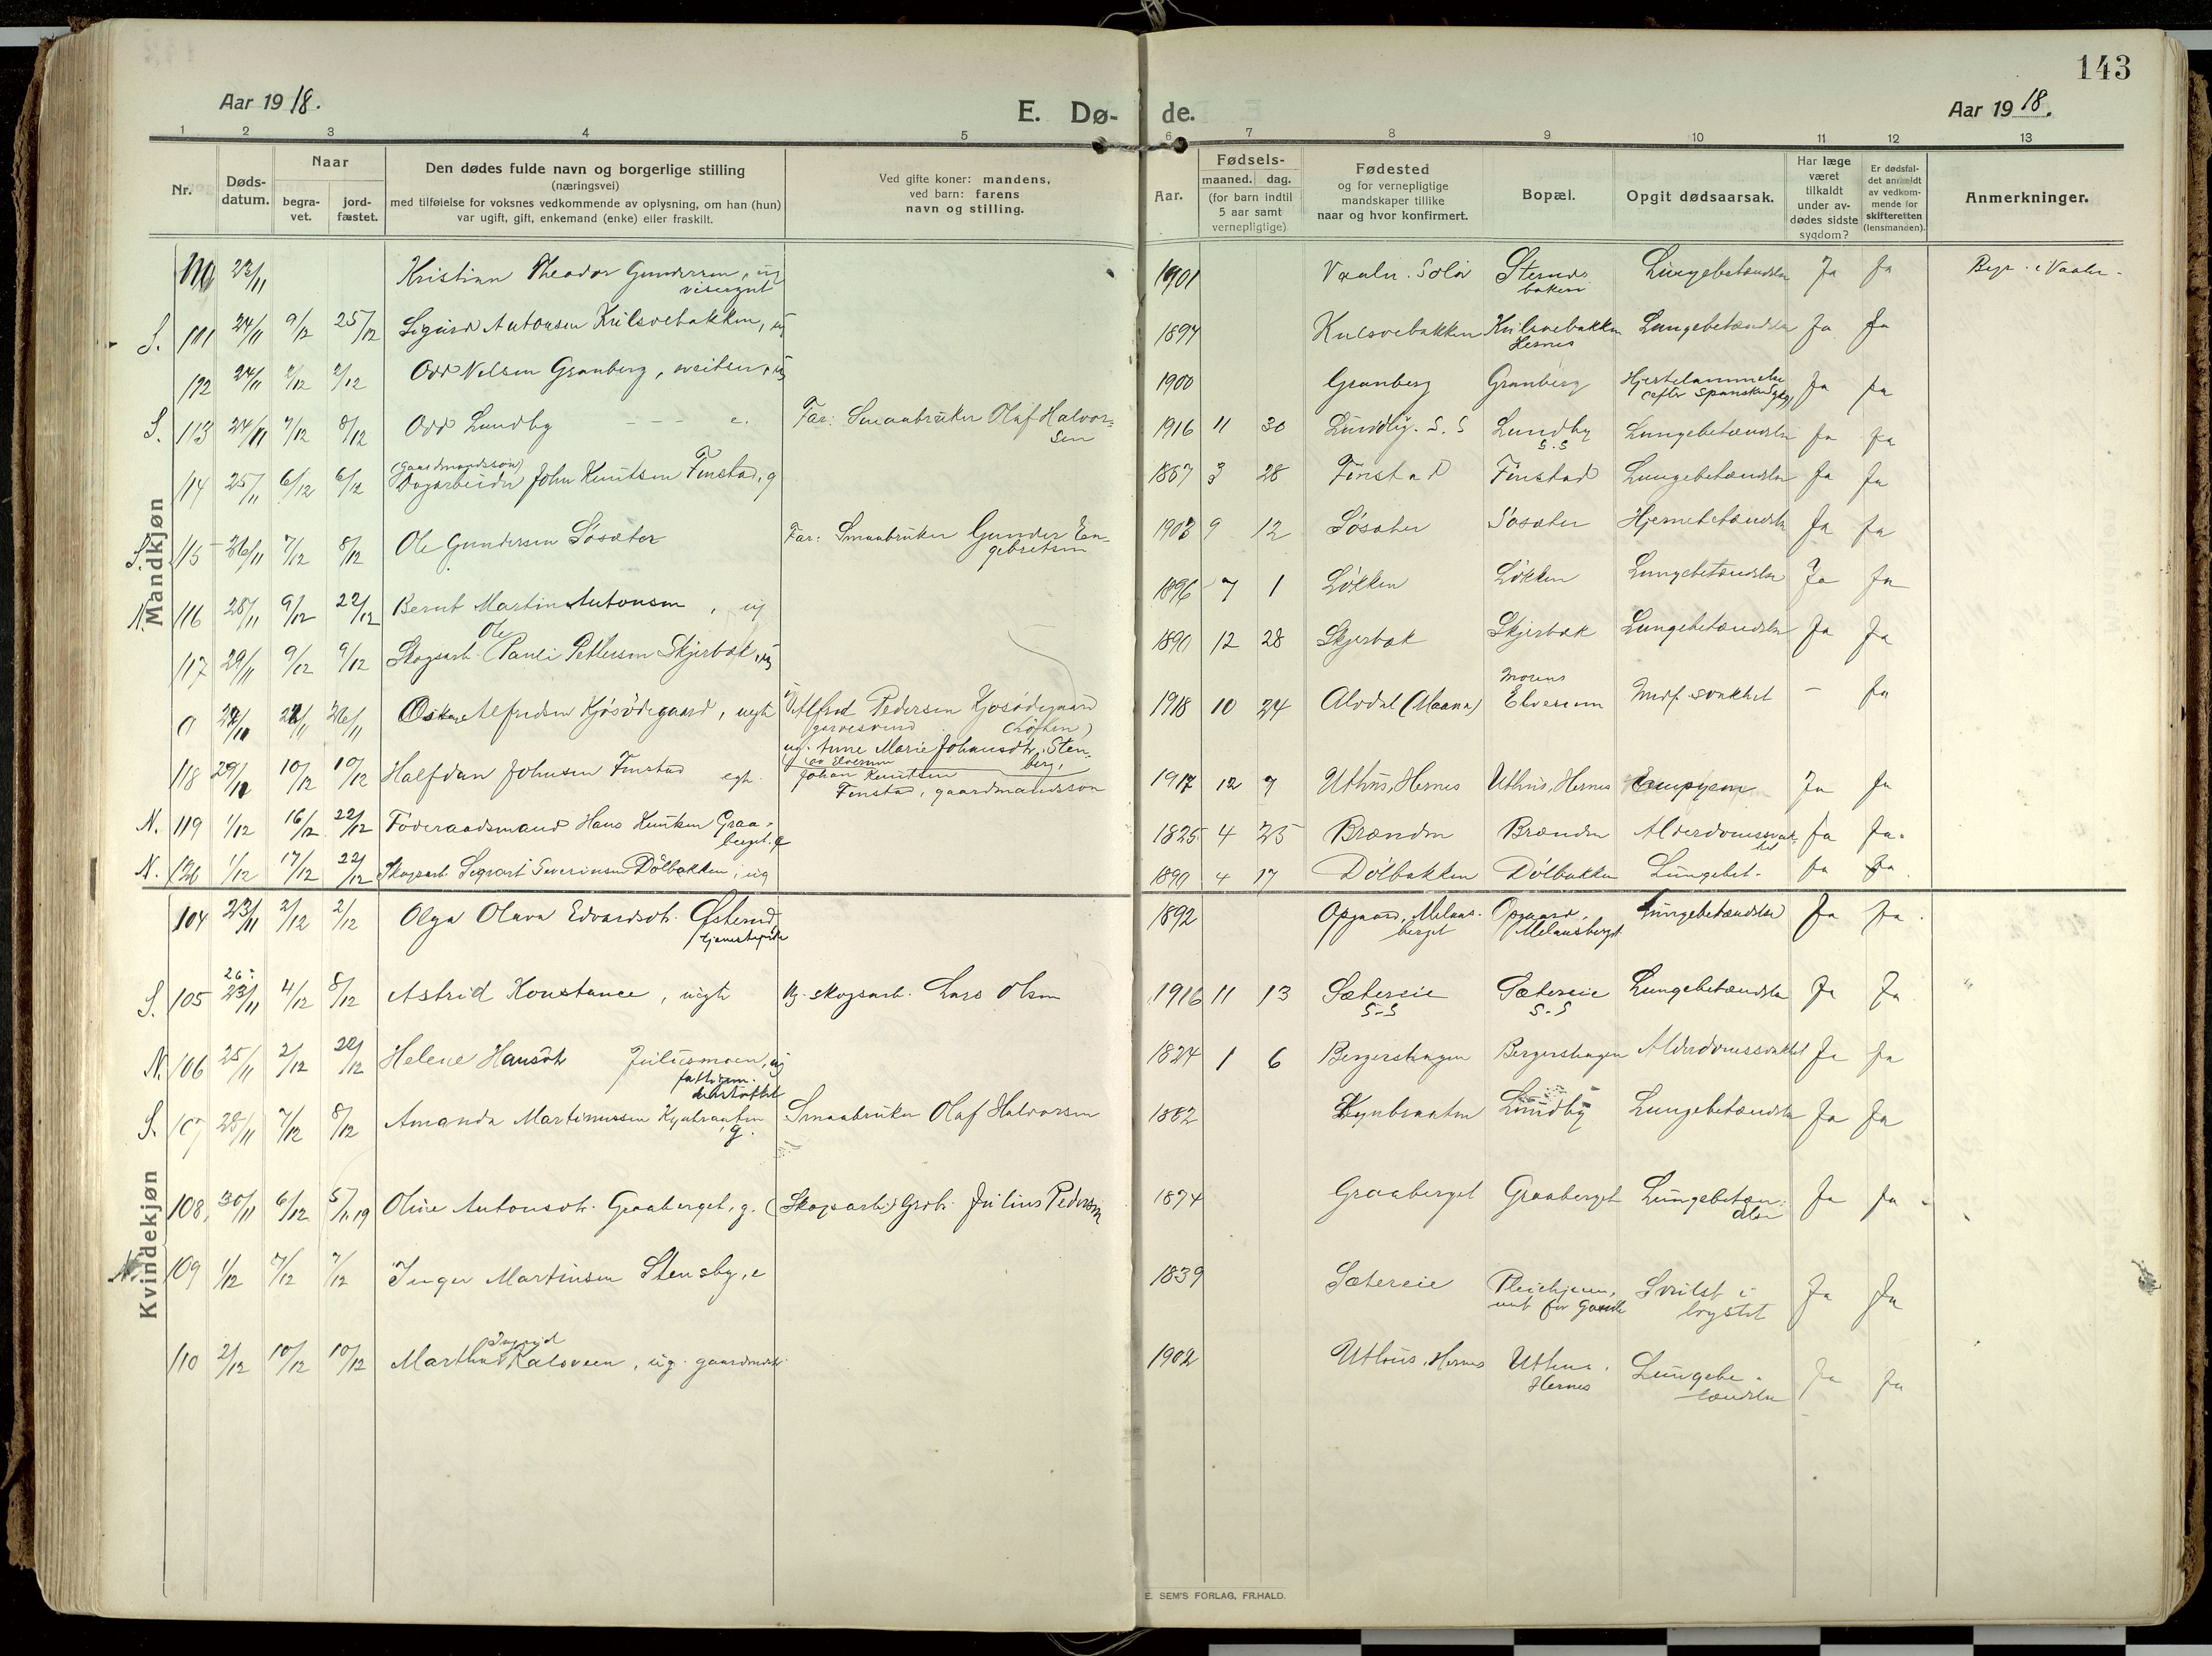 143
Aar 1918.
E. Dø-
de.
Aar 1918.
1 2 3 4 5 6 7 8 9 10 11 12 13
Nr.
Døds-
datum.
Naar
begra-
vet.
jord-
fæstet.
Den dødes fulde navn og borgerlige stilling
(næringsvei)
med tilføielse for voksnes vedkommende av oplysning, om han (hun)
var ugift, gift, enkemand (enke) eller fraskilt.
Ved gifte koner: mandens,
ved barn: farens
navn og stilling.
Aar.
Fødsels-
maaned. dag.
(for barn indtil
5 aar samt
vernepligtige)
Fødested
og for vernepligtige
mandskaper tillike
naar og hvor konfirmert.
Bopæl.
Opgit dødsaarsak.
Har læge
været
tilkaldt
under av-
dødes sidste
sygdom?
Er dødsfal-
det anmeldt
av vedkom-
mende for
skifteretten
(lensmanden).
Anmerkninger.
Mandkjøn
23/11 Kristian Theodor Gundersen, ug 1901 Vaaler. Solør Lungebetændelse Ja Ja Begr. i Vaaler.
S. 111 24/11 9/12 25/12 Sigurd Antonsen Kulsvebakken, ug 1897 Kulsvebakken Kulsvebakken Lungebetændelse Ja Ja
Hernes
112 24/11 2/12 2/12 Odd Nilsen Granberg, ug 1900 Granberg Granberg Ja Ja
efter Spanskesyken
S. 113 24/11 7/12 8/12 Odd Lundby Far: Smaabruker Olaf Halvor- 1916 11 30 Lundby. S.S Lundby Lungebetændelse Ja Ja
sen S.S
(Gaardmandssøn)
114 25/11 6/12 6/12 Dagarbeider John Knutsen Finstad, g 1887 3 28 Finstad Finstad Lungebetændelse Ja Ja
S. 115 26/11 7/12 8/12 Ole Gundersen Søsæter Far: Smaabruker Gunder En- 1903 9 12 Søsæter Søsæter Hjernebetændelse Ja Ja
gebretsen
N. 116 28/11 9/12 22/12 Bernt Martin Antonsen, ug 1896 7 1 Løkken Løkken Lungebetændelse Ja Ja
Ole
117 29/11 9/12 9/12 Skogsarb. Pauli Pettersen Skjerbæk, ug 1890 12 28 Skjerbæk Skjerbæk Lungebetændelse Ja Ja
Morens
0 Oskar Alfredsen Kjøsødegaard, uegte Alfred Pedersen Kjøsødegaard 1918 10 24 Alvdal Elverum Medf. svakhet - Ja
(Løthen)
ug. Anne Marie Johansdtr. Sten-
av Elverum berg,
118 10/12 10/12 Halfdan Johnsen Finstad egte. Johan Knutsen 1917 12 7 Uthus, Hernes Uthus, Hernes Empyem Ja Ja
Finstad, gaardmandssøn
N. 119 1/12 16/12 22/12 Føderaadsmand Hans Knutsen Graa- 1825 4 25 Brænden Brænden Alderdomssvak- Ja Ja.
berget. het
N. 120 1/12 17/12 22/12 Skogsarb. Sigvart Severinsen Dølbakken, ug 1890 4 17 Dølbakken Dølbakken Lungebet. Ja Ja
Kvindekjøn
104 23/11 2/12 2/12 Olga Olava Edvardsdtr. Østerud 1892 Opgaard, Melaas- Opgaard, Lungebetændelse Ja Ja
tjenestepike berget Melaasberget
26:
S. 105 23/11 4/12 8/12 Astrid Konstance, uegte Ug. skogsarb. Lars Olsen 1916 11 13 Sætereie Sætereie Lungebetændelse Ja Ja
S-S S-S
N. 106 25/11 2/12 22/12 Helene Hansdtr Juliusmoen, ug 1824 1 6 Bergershagen Bergershagen Alderdomssvakhet Ja Ja
S. 107 28/11 7/12 8/12 Amanda Martinussen Kynbraaten Smaabruker Olaf Halvorsen 1882 Kynbraaten Lundby Lungebetændelse Ja Ja
g.
108, 30/11 6/12 5/1 19 Oline Antonsdtr. Graaberget, g. (Skogsarb.) Grbr. Julius Pedersen 1874 Graaberget Graaberget Lungebetæn- Ja Ja
delse
N. 109 1/12 7/12 7/12 Inger Martinsen Stensby, e 1839 Sætereie Pleiehjem, Svulst i Ja Ja
brystet
Ingrid
110 2/12 10/12 10/12 Martha Kalsveen, ug. 1902 Uthus, Hernes Uthus, Lungebe- Ja Ja
Hernes tændelse
E. SEM'S FORLAG, FR.HALD.